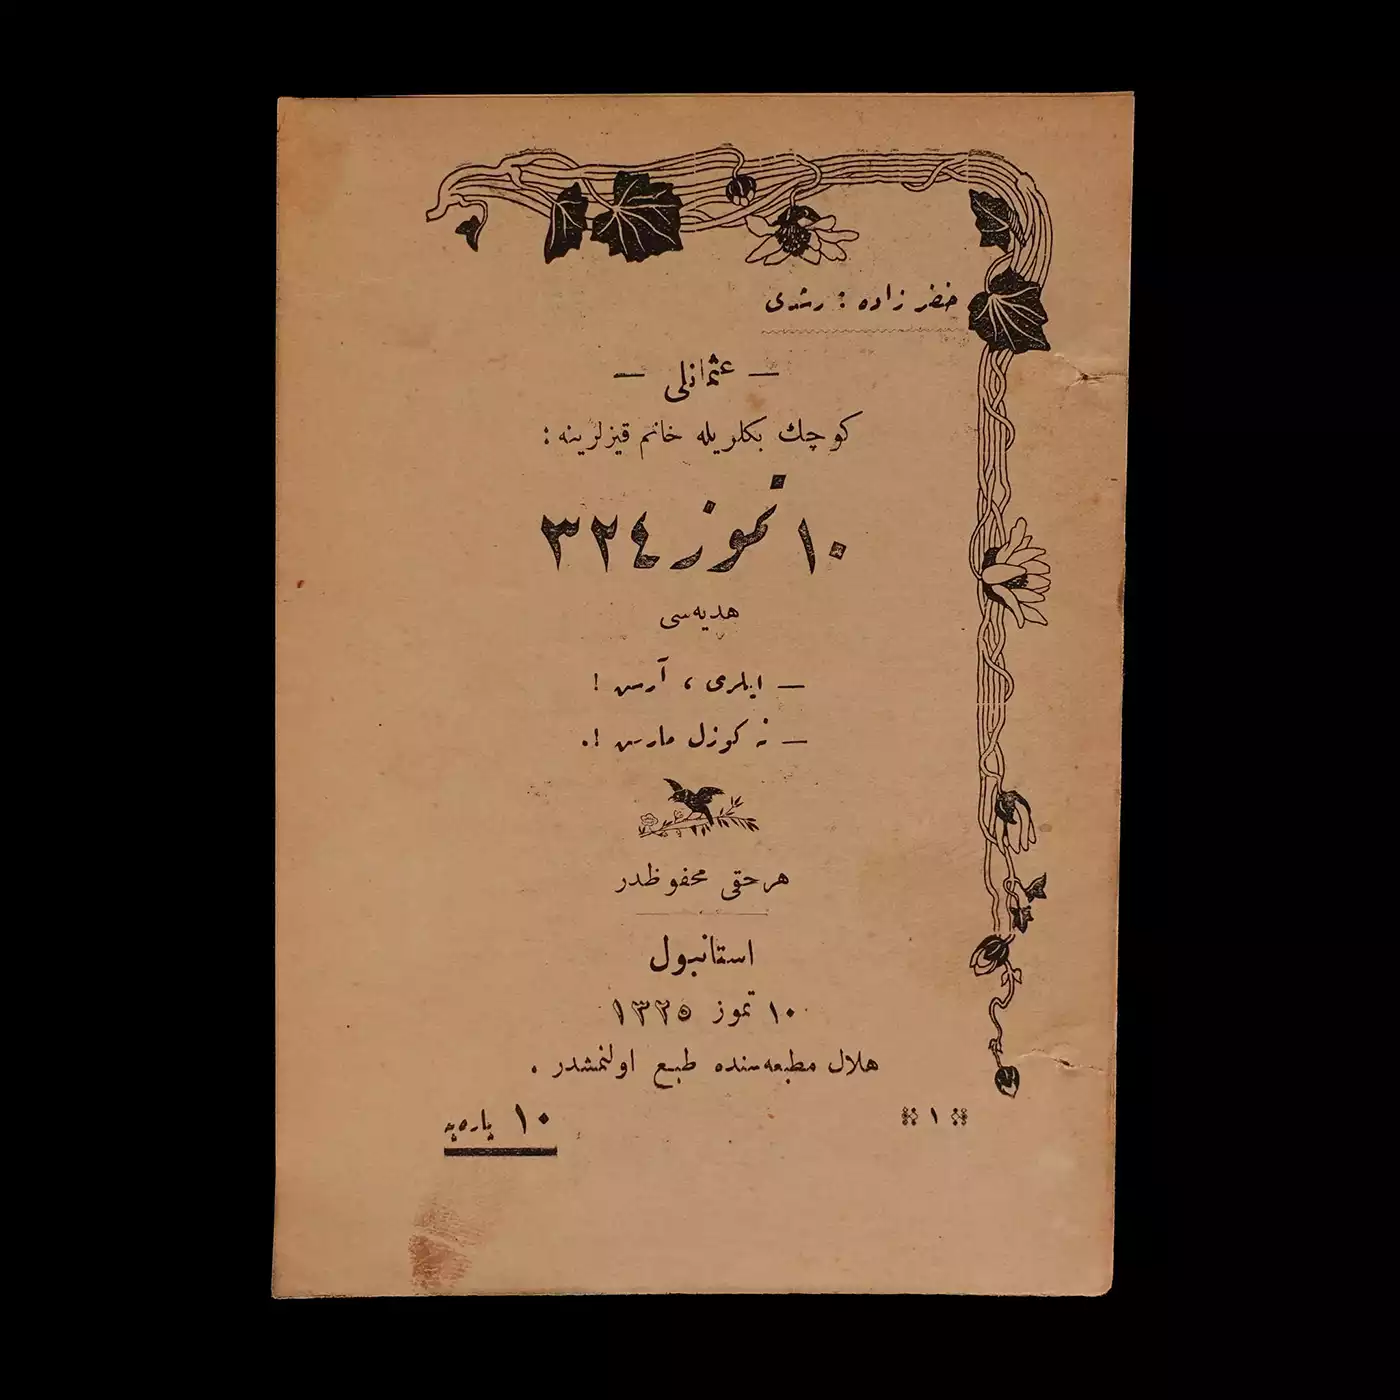 خضر زاده : رشدی
— عثمانلی —
كوچك بكلريله خانم قيزلرينه :
١٠ تموز ٣٢٤
هديه‌سی
— ايلری ، آرس !
— نه كوزل مارس !.
هر حقی محفوظدر
استانبول
١٠ تموز ١٣٢٥
هلال مطبعه‌سنده طبع اولنمشدر .
١
١٠ پاره‌يه